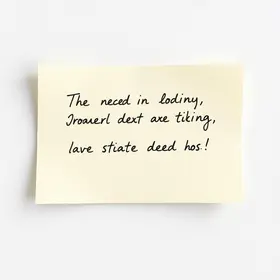 The neced in lodiny,
Iroarerl dext are tiking,
lave stiate deed hos!